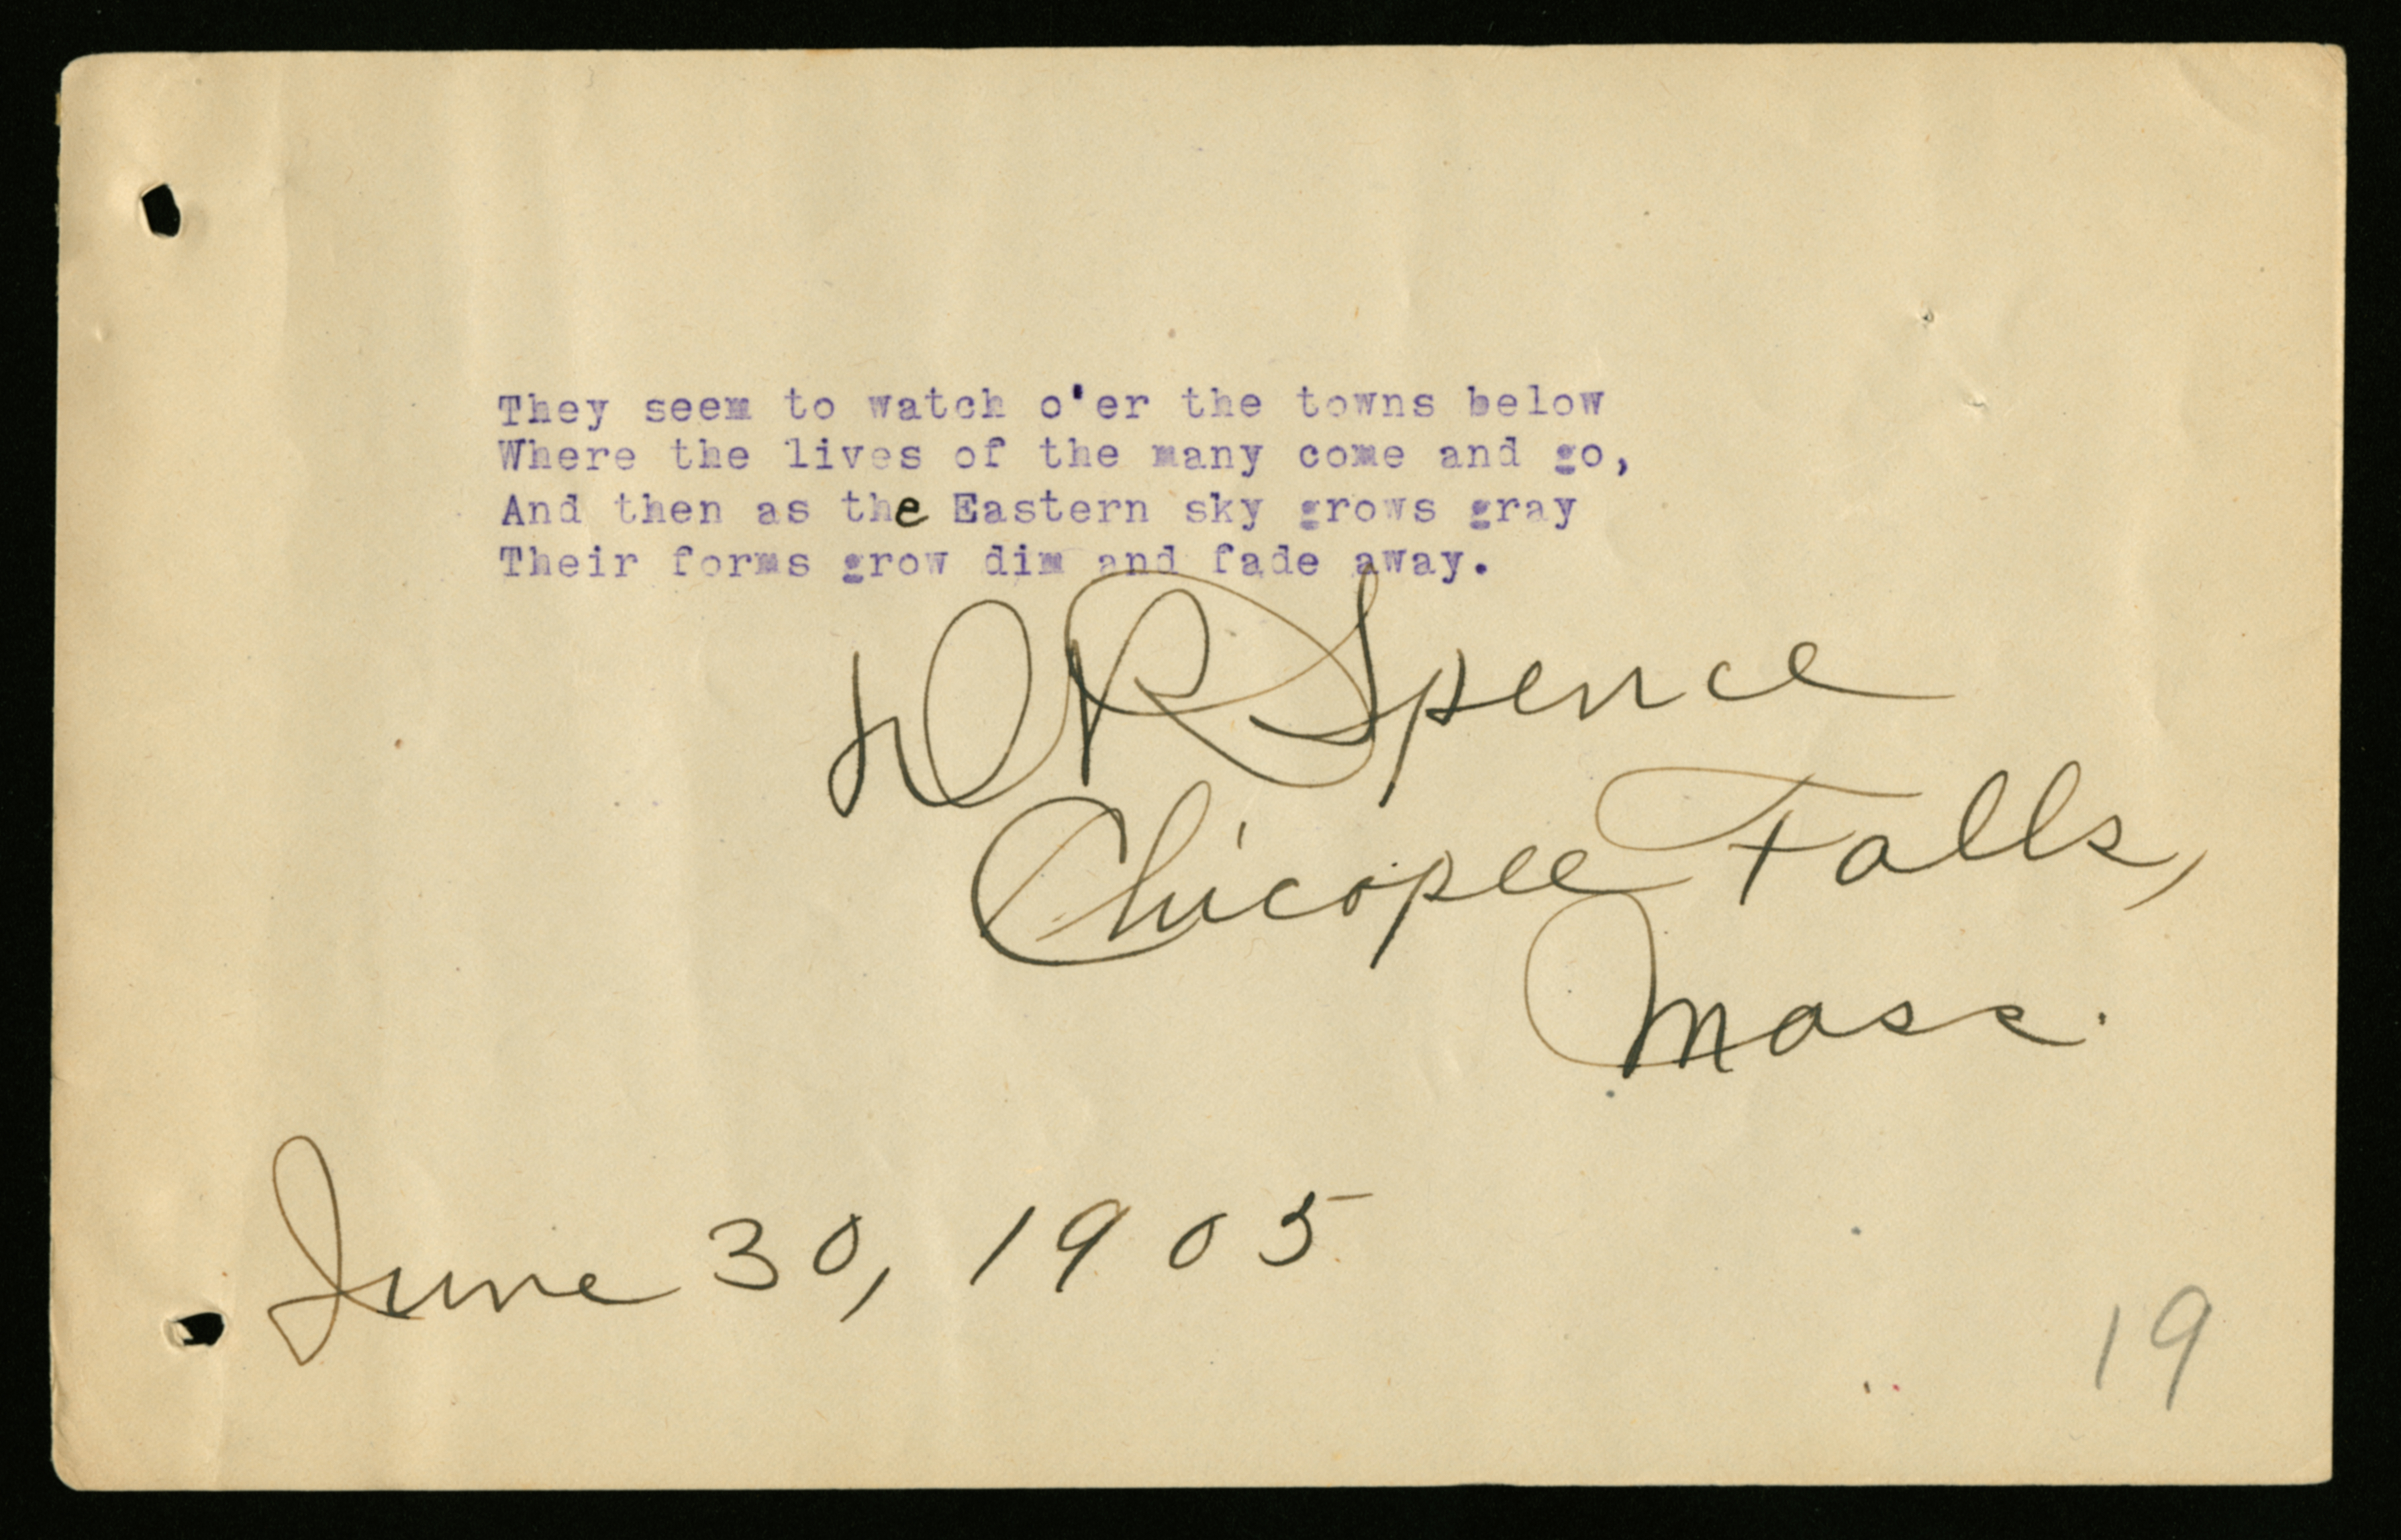 They seem to watch o'er the towns below
Where the lives of the many come and go,
And then as the Eastern sky grows gray
Their forms grow dim and fade away.
D R Spence
Chicopee Falls,
Mass.
June 30, 1905
19